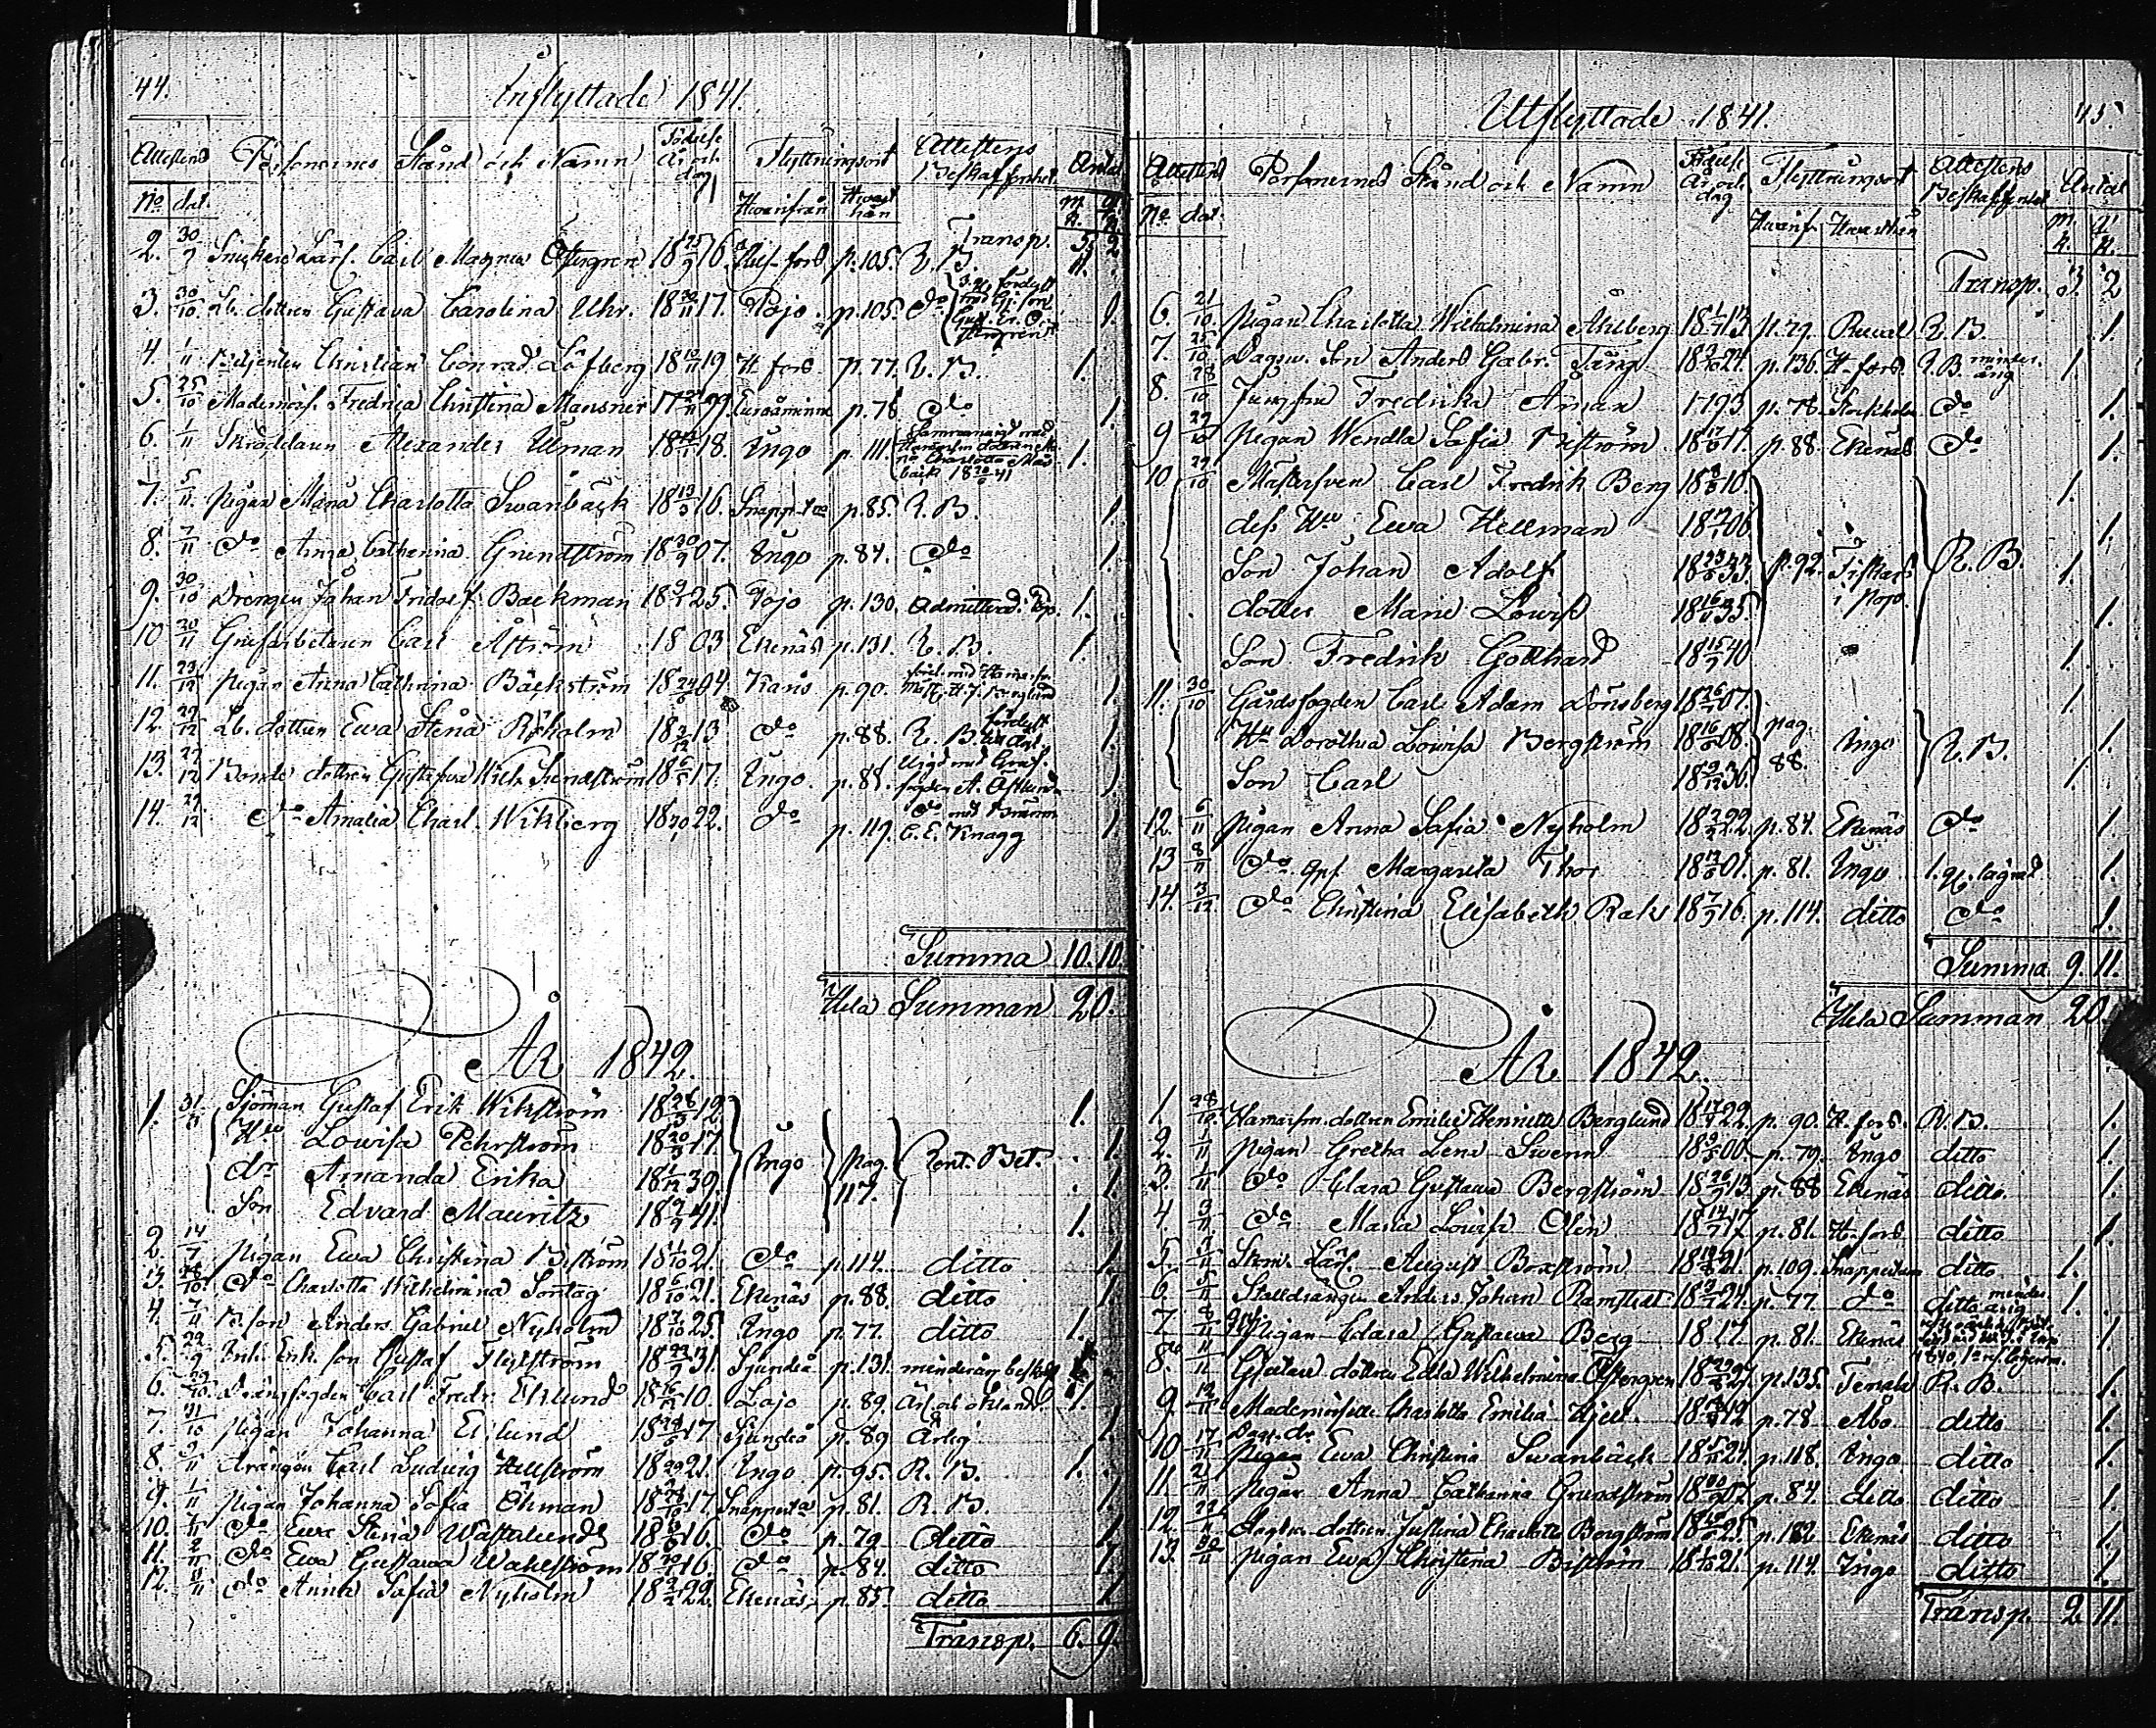 44.
Inflyttade 1841.
Attestens Personernes Stånd och Namn Födelse År och dag Flyttningsort Attestens Beskaffenhet Antal
No dat. Hvarifrån Hvart hän M. K. Q. K.
Transp. 5. 2
2. 30/9 Snickare Lärl. Carl Magnus Östergren 18 25/9 16. Hels-fors p. 105. R. B. 1.
3. 30/10 Lb. dottren Gustava Carolina Uhr. 18 /11 17. Pojo p. 105. do 1.
4. 1/11 Christian Conrad Löfberg 18 10/11 19 H.fors p. 77. R. B. 1.
5. 25/10 Mademois. Fredrica Christina Mansner 17 /11 99. p. 78 do 1.
6. 1/11 Skräddaren Alexander Ullman 18 18. Ingo p. 111. 1.
7. 5/11 Pigan Maria Charlotta Swanbäck 18 13/3 16. Snappert. p. 85. R. B. 1.
8. 7/11 do Anna Catharina Grundström 18 30/9 07. Ingo p. 84. do 1.
9. 30/10 Drängen Johan Fridolf Backman 18 25. Pojo p. 130. Admitterad. 1.
10 20/11 Carl Åström 18 03. Ekenäs p. 131. R. B. 1.
11. 23/12 Pigan Anna Cathrina Bäckström 18 24 04. Karis p. 90. 1.
12. 29/12 Lb. dottren Ewa Stena Röholm 18 3/12 13 do p. 88. R. B. 1.
13. 27/12 Bonde dottren Gustafva Wilh. Sundström 18 6/5 17. Ingo. p. 88. 1.
14. 29/12 do Amalia Charl. Wikberg 18 22. do p. 119. C. E. Knagg 1.
Summa 10. 10.
Hela Summan 20.
År 1842.
1. 31/3 Sjöman Gustaf Erik Wikström 18 26/3 12. 1.
Hu Lowisa Pehrström 18 20/3 17. 1.
dr Amanda Erika 18 1/12 39. Ingo pag. 117. Pont. Bet. 1.
Son Edvard Mauritz 18 41. 1.
2. 14/7 Pigan Ewa Christina Biström 18 1/10 21. do p. 114. ditto 1.
3. 28/10. do Charlotta Wilhelmina Sontag 18 6/10 21. Ekenäs p. 88. ditto 1
4. 7/11 B. son Anders Gabriel Nyholm 18 7/10 25. Ingo p. 77. ditto 1.
5. 29/9 Enk. son Gustaf Flyström 18 23/9 31. Sjundeå p. 131. minderårig
6. 29/10. Drängfogden Carl Fredr. Eklund 18 16 10. Lojo p. 89. 1.
7. 31/10 Pigan Johanna Eklund 18 24/6 17 Sjundeå p. 89 Ärlig 1.
8. 3/11 Drängen Carl Ludvig Hellström 18 29 21. Ingo p. 95. R. B. 1.
9. 1/11 Pigan Johanna Sofia Öhman 18 28/10 17. Snapperta p. 81. R. B. 1.
10. 1/11 do Ewa Stina Wästerlund 18 16. do p. 79 ditto 1.
11. 2/11 do Ewa Gustawa Wahlström 18 16. do p. 84. ditto 1.
12. do Anna Sofia Nyholm 18 2/2 22. Ekenäs p. 85. ditto 1
Transp. 6. 9.
Utflyttade 1841. 45.
Attestens Personernes Stånd och Namn Födelse År och dag Flyttningsort Attestens Beskaffenhet Antal
No dat. Hvarifr. Hvarthän M. K. Q. K.
Transp. 3. 2
6. 21/10 Pigan Charlotta Wilhelmina Åhlberg 18 1/11 13 p. 79. Reval R. B. 1.
7. 25/10 Dagsv. Son Anders Gabr. Tång 18 3/10 24. p. 136. H-fors. R. B. minder. årig 1
8. 28/10 Jungfru Fredrika Åman 1793 p. 78. Stockholm do 1.
9 29/10 Pigan Wendla Sofia Biström 18 17 17. p. 88. Ekenäs do 1.
10 29/10 Mästersven Carl Fredrik Berg 18 8/8 10. 1.
dess Hu Ewa Hellman 18 12/1 06. 1.
Son Johan Adolf 18 23/8 33. p. 92. Fiskars i Pojo. R. B. 1
dotter Marie Lowisa 18 16 35. 1.
Son Fredrik Gotthard 18 15/2 40 1.
11. 30/10 Gårdsfogden Carl Adam Lönsberg 18 26 07. 1.
Hu Dorothea Lowisa Bergström 18 16 08. pag. 88. Ingo R. B. 1.
Son Carl 18 2/12 36. 1.
12. 6/11 Pigan Anna Sofia Nyholm 18 2/2 22. p. 84. Ekenäs do 1.
13 8/11 do Margareta Thor 18 01. p. 81. Ingo 1.
14. 3/12. do Christina Elisabeth Raks 18 7/5 16. p. 114. ditto do 1.
Summa 9. 11.
Hela Summan 20
År 1842.
1. 28/10. dottren Emilie Henrietta Berglund 18 17/9 22. p. 90. H.fors. R. B. 1.
2. 1/11 Pigan Gretha Lena Swenn 18 9/5 00 p. 79. Ingo ditto 1.
3. 1/11 do Clara Gustawa Bergström 18 26/9 13. p. 88 Ekenäs ditto. 1.
4. 3/11 do Maria Lowisa Olin 18 14/7 17 p. 81. H-fors ditto 1.
5. 5/11 Skom. Lärl. August Boxström 18 21. p. 109. Snappertuna ditto 1.
6. 5/11 Stalldrängen Anders Johan Ramstedt 18 24. p. 77. do ditto minder. årig 1.
7. 8/11 Pigan Clara Gustawa Berg 18 17. p. 81. Ekenäs 1
8. 11/11 dottren Edla Wilhelmina Östergren 18 29/8 27. p. 135. Tenala R. B. 1.
9. 12/11 Mademoiselle Charlotta Emilia Kjell 18 12 p. 78 Åbo ditto 1.
10. 17/11 Dagv. dr Ewa Christina Swanbäck 18 24. p. 118. Ingo ditto 1.
11. 21/11 Pigan Anna Catharina Grundström 18 30/9 07. p. 84. ditto ditto 1.
12. 22/11 dottren Justina Charlotta Bergström 18 25. p. 132 Ekenäs ditto 1.
13. 30/11 Pigan Ewa Christina Biström 18 1/10 21. p. 114. Ingo ditto 1.
Transp. 2 11.